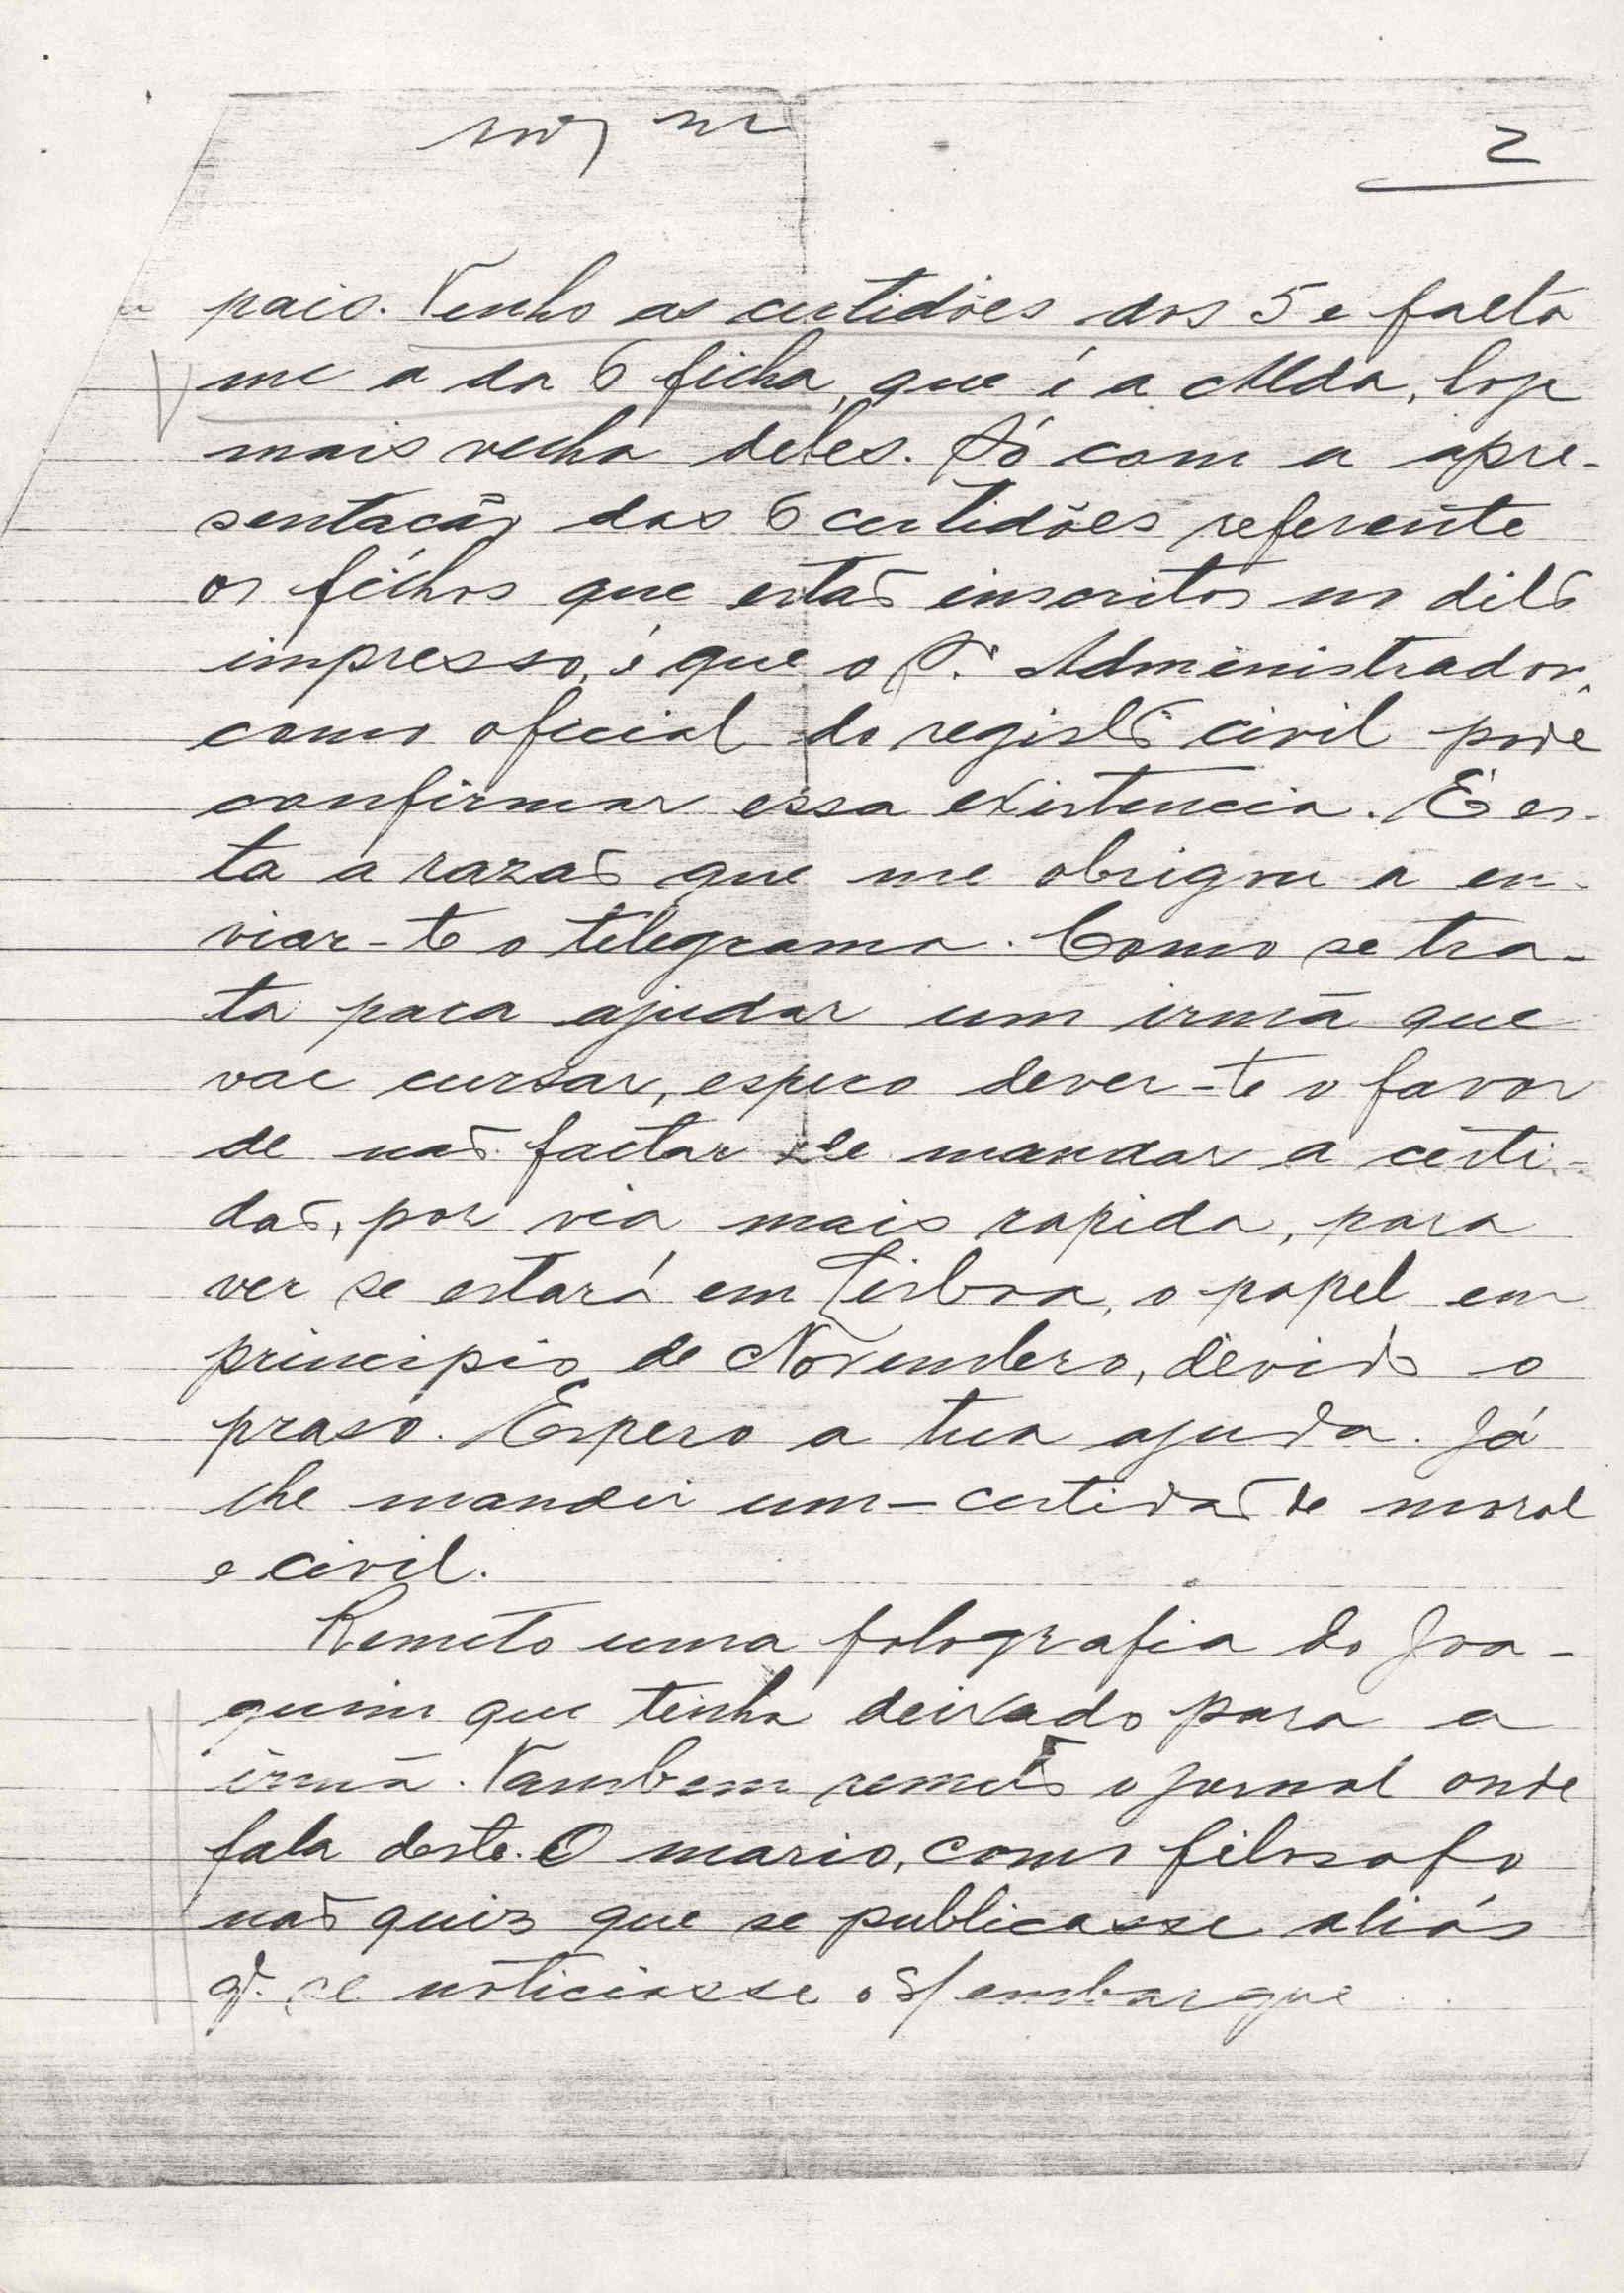 2
pais. Tenho as certidões dos 5 e falta
me a da 6 ficha, que é a Alda, hoje
mais velha deles. Só com a apre-
sentacão das 6 certidões referente
os fichos que estão inscritos no dito
impresso, é que o Sr. Administrador,
como oficial do registo civil pode
confirmar essa existencia. É es-
ta a razão que me obrigou a en-
viar-te o telegrama. Como se tra-
ta para ajudar um irmã que
vae cursar, espero dever-te o favor
de não faltar de mandar a certi-
dão, por via mais rapida, para
ver se estará em Lisboa, o papel em
principio de Novembro, devido o
praso. Espero a tua ajuda. Já
lhe mandei um-certidão de moral
e civil.
Remeto uma fotografia do Joa-
quim que tinha deixado para a
irmã. Tambem remeto o jornal onde
fala deste. O mario, como filosofo
não quiz que se publicasse aliás
q. se noticiasse o s/ embarque